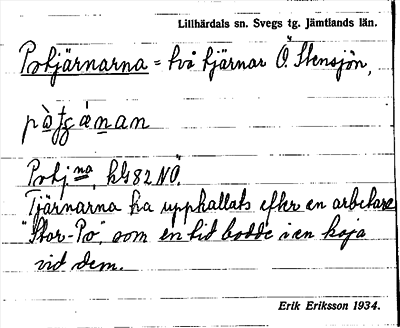 Lillhärdals sn. Svegs tg. Jämtlands län.
Potjärnarna = två tjärnar Ö. Stensjön,
Potj na, k482 NÖ.
Tjärnarna ha upphallats efter en arbetare
"Stor-Po", som en tid bodde i en koja
vid dem.
Erik Eriksson 1934.